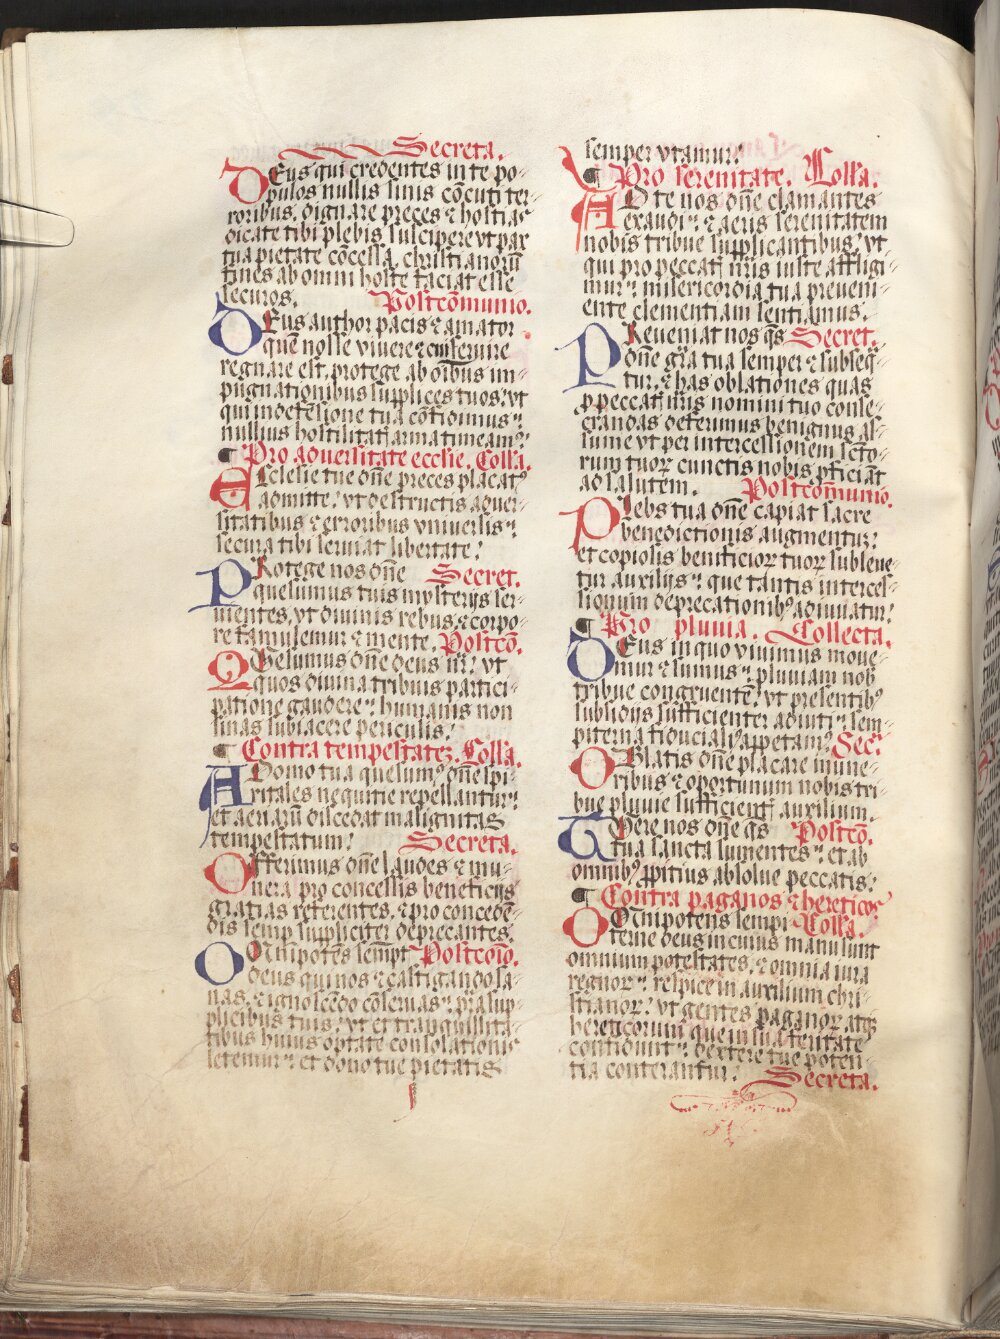 Secreta.
DEus qui credentes in te po-
pulos nullis sinis cōcuti ter-
roribus. dignare preces ⁊ hostias
dicate tibi plebis suscipere vt pax
tua pietate cōcessa. christianorū
fines ab omni hoste faciat esse
securos. Postcōmunio.
DEus author pacis ⁊ amator
quē nosse viuere ⁊ cui seruire
regnare est. protege ab oībus im-
pugnationibus supplices tuos: vt
qui in defēsione tua cōfidimus:
nullius hostilitatꝭ arma timeamꝰ
¶ Pro aduersitate ecclīe. Coll'a.
Ecclesie tue dn̄e preces placatꝰ
admitte: vt destructis aduer-
sitatibus ⁊ erroribus vniuersis:
secura tibi seruiat libertate:
PRotege nos dn̄e Secret.
quesumus tuis mysterijs ser-
uientes. vt diuinis rebus. ⁊ corpo-
re famulemur ⁊ mente. Postcō.
QVesumus dn̄e deus nr̄: vt
quos diuina tribuis partici-
patione gaudere: humanis non
sinas subiacere periculis:
¶ Contra tempestatez. Coll'a.
A Domo tua quesumꝰ dn̄e spi-
ritales nequitie repellantur:
et aeriarū discedat malignitas
tempestatum: Secreta.
Offerimus dn̄e laudes ⁊ mu-
nera pro concessis beneficijs
gratias referentes. ⁊ pro concedē-
dis semp suppliciter deprecantes.
OMnipotēs semp̄t Postcōio.
deus qui nos ⁊ castigando sa-
nas. ⁊ ignoscēdo cōseruas: p̄ra sup-
plicibus tuis: vt et tranquillita-
tibus huius optate consolationis
letemur: et dono tue pietatis
semper vtamur:
¶ Pro serenitate. Coll'a.
AD te nos dn̄e clamantes
exaudi: ⁊ aeris serenitatem
nobis tribue supplicantibus: vt
qui pro peccatꝭ nr̄is iuste affligi-
mur: misericordia tua preueni-
ente clementiam sentiamus.
PReueniat nos q̄s Secret.
dn̄e gr̄a tua semper ⁊ subseq̄-
tur. ⁊ has oblationes quas
ꝓ peccatꝭ nr̄is nomini tuo conse-
crandas deferimus benignus as-
sume vt per intercessionem scto-
rum tuoꝝ cunctis nobis ꝓficiāt
ad salutem. Postcōmunio.
PLebs tua dn̄e capiat sacre
benedictionis augmentum:
et copiosis beneficioꝝ tuoꝝ subleue-
tur auxilijs: que tantis interces-
sionum deprecationibꝰ adiuuatur:
¶ Pro pluuia. Collecta.
DEus in quo viuimus moue-
mur ⁊ sumus: pluuiam nob
tribue congruentē: vt presentibꝰ
subsidijs sufficienter adiuti: sem-
piterna fiducialiꝰ appetamꝰ. Sec̄.
OBlatis dn̄e placare mune-
ribus ⁊ oportunum nobis tri-
bue pluuie sufficientꝭ auxilium.
TVere nos dn̄e q̄s Postcō.
tua sancta sumentes: et ab
omnibꝰ ꝓpitius absolue peccatis:
¶ Contra paganos ⁊ hereticos
OMnipotens sempi- Coll'a.
terne deus in cuius manu sunt
omnium potestates. ⁊ omnia iura
regnoꝝ: respice in auxilium chri-
stianoꝝ: vt gentes paganoꝝ atqꝫ
hereticorum que in sua feritate
confidunt: dextere tue poten-
tia conterantur: Secreta.